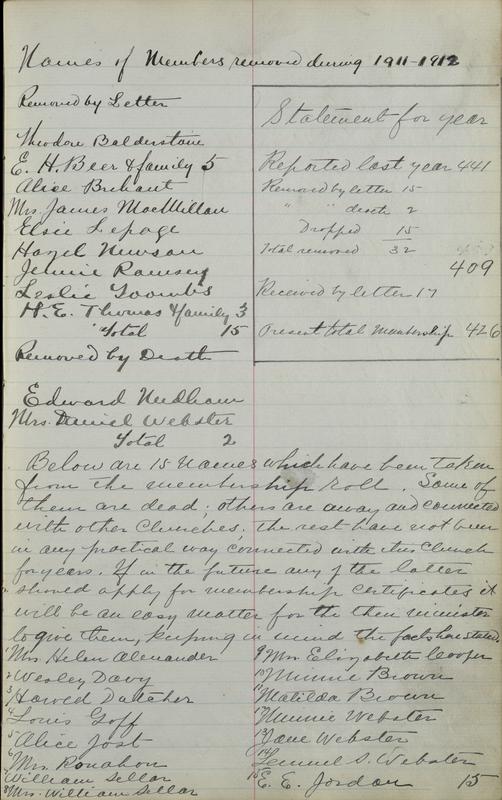 Names of Members removed during 1911-1912
Removed by Letter
Theodore Balderstone
E. H. Beer & family 5
Alice Brehaut
Mrs. James MacMillan
Elsie Lepage
Hazel Newson
Jennie Ramsey
Leslie Toombs
H. E. Thomas & family 3
Total 15
Removed by Death
Edward Needham
Mrs. Daniel Webster
Total 2
Statement for year
Reported last year 441
Removed by letter 15
" " death 2
Dropped 15
Total removed 32
409
Received by letter 17
Present total membership 426
Below are 15 names which have been taken
from the membership roll. Some of
them are dead; others are away and connected
with other Churches; the rest have not been
in any practical way connected with this Church
for years. If in the future any of the latter
should apply for membership certificates it
will be an easy matter for the then minister
to give them, keeping in mind the facts here stated
1 Mrs. Helen Alexander
2 Wesley Davy
3 Harold Dutcher
4 Louis Goff
5 Alice Jost
6 Mrs. Ronahan
7 William Sellar
8 Mrs. William Sellar
9 Mrs. Elizabeth Cooper
10 Minnie Brown
11 Matilda Brown
12 Minnie Webster
13 Jane Webster
14 Lemuel S. Webster
15 E. E. Jordan 15